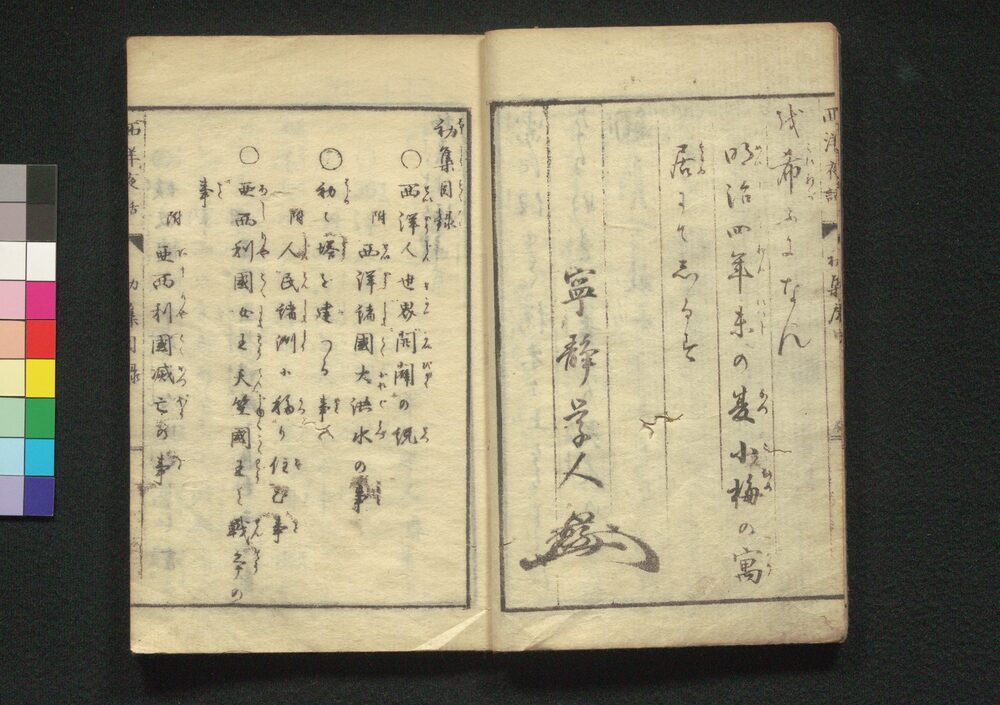 を希ふになん
明治四年未の夏小梅の寓
居にてしるす
寧静学人
初集目録
○西洋人世界開闢の説
附西洋諸國大洪水の事
○初て塔を建つる事
附人民諸洲に移り住む事
○亜西利國女王天竺國王と戦争の
事
附亜西利國滅亡の事
西洋夜話
初集目録